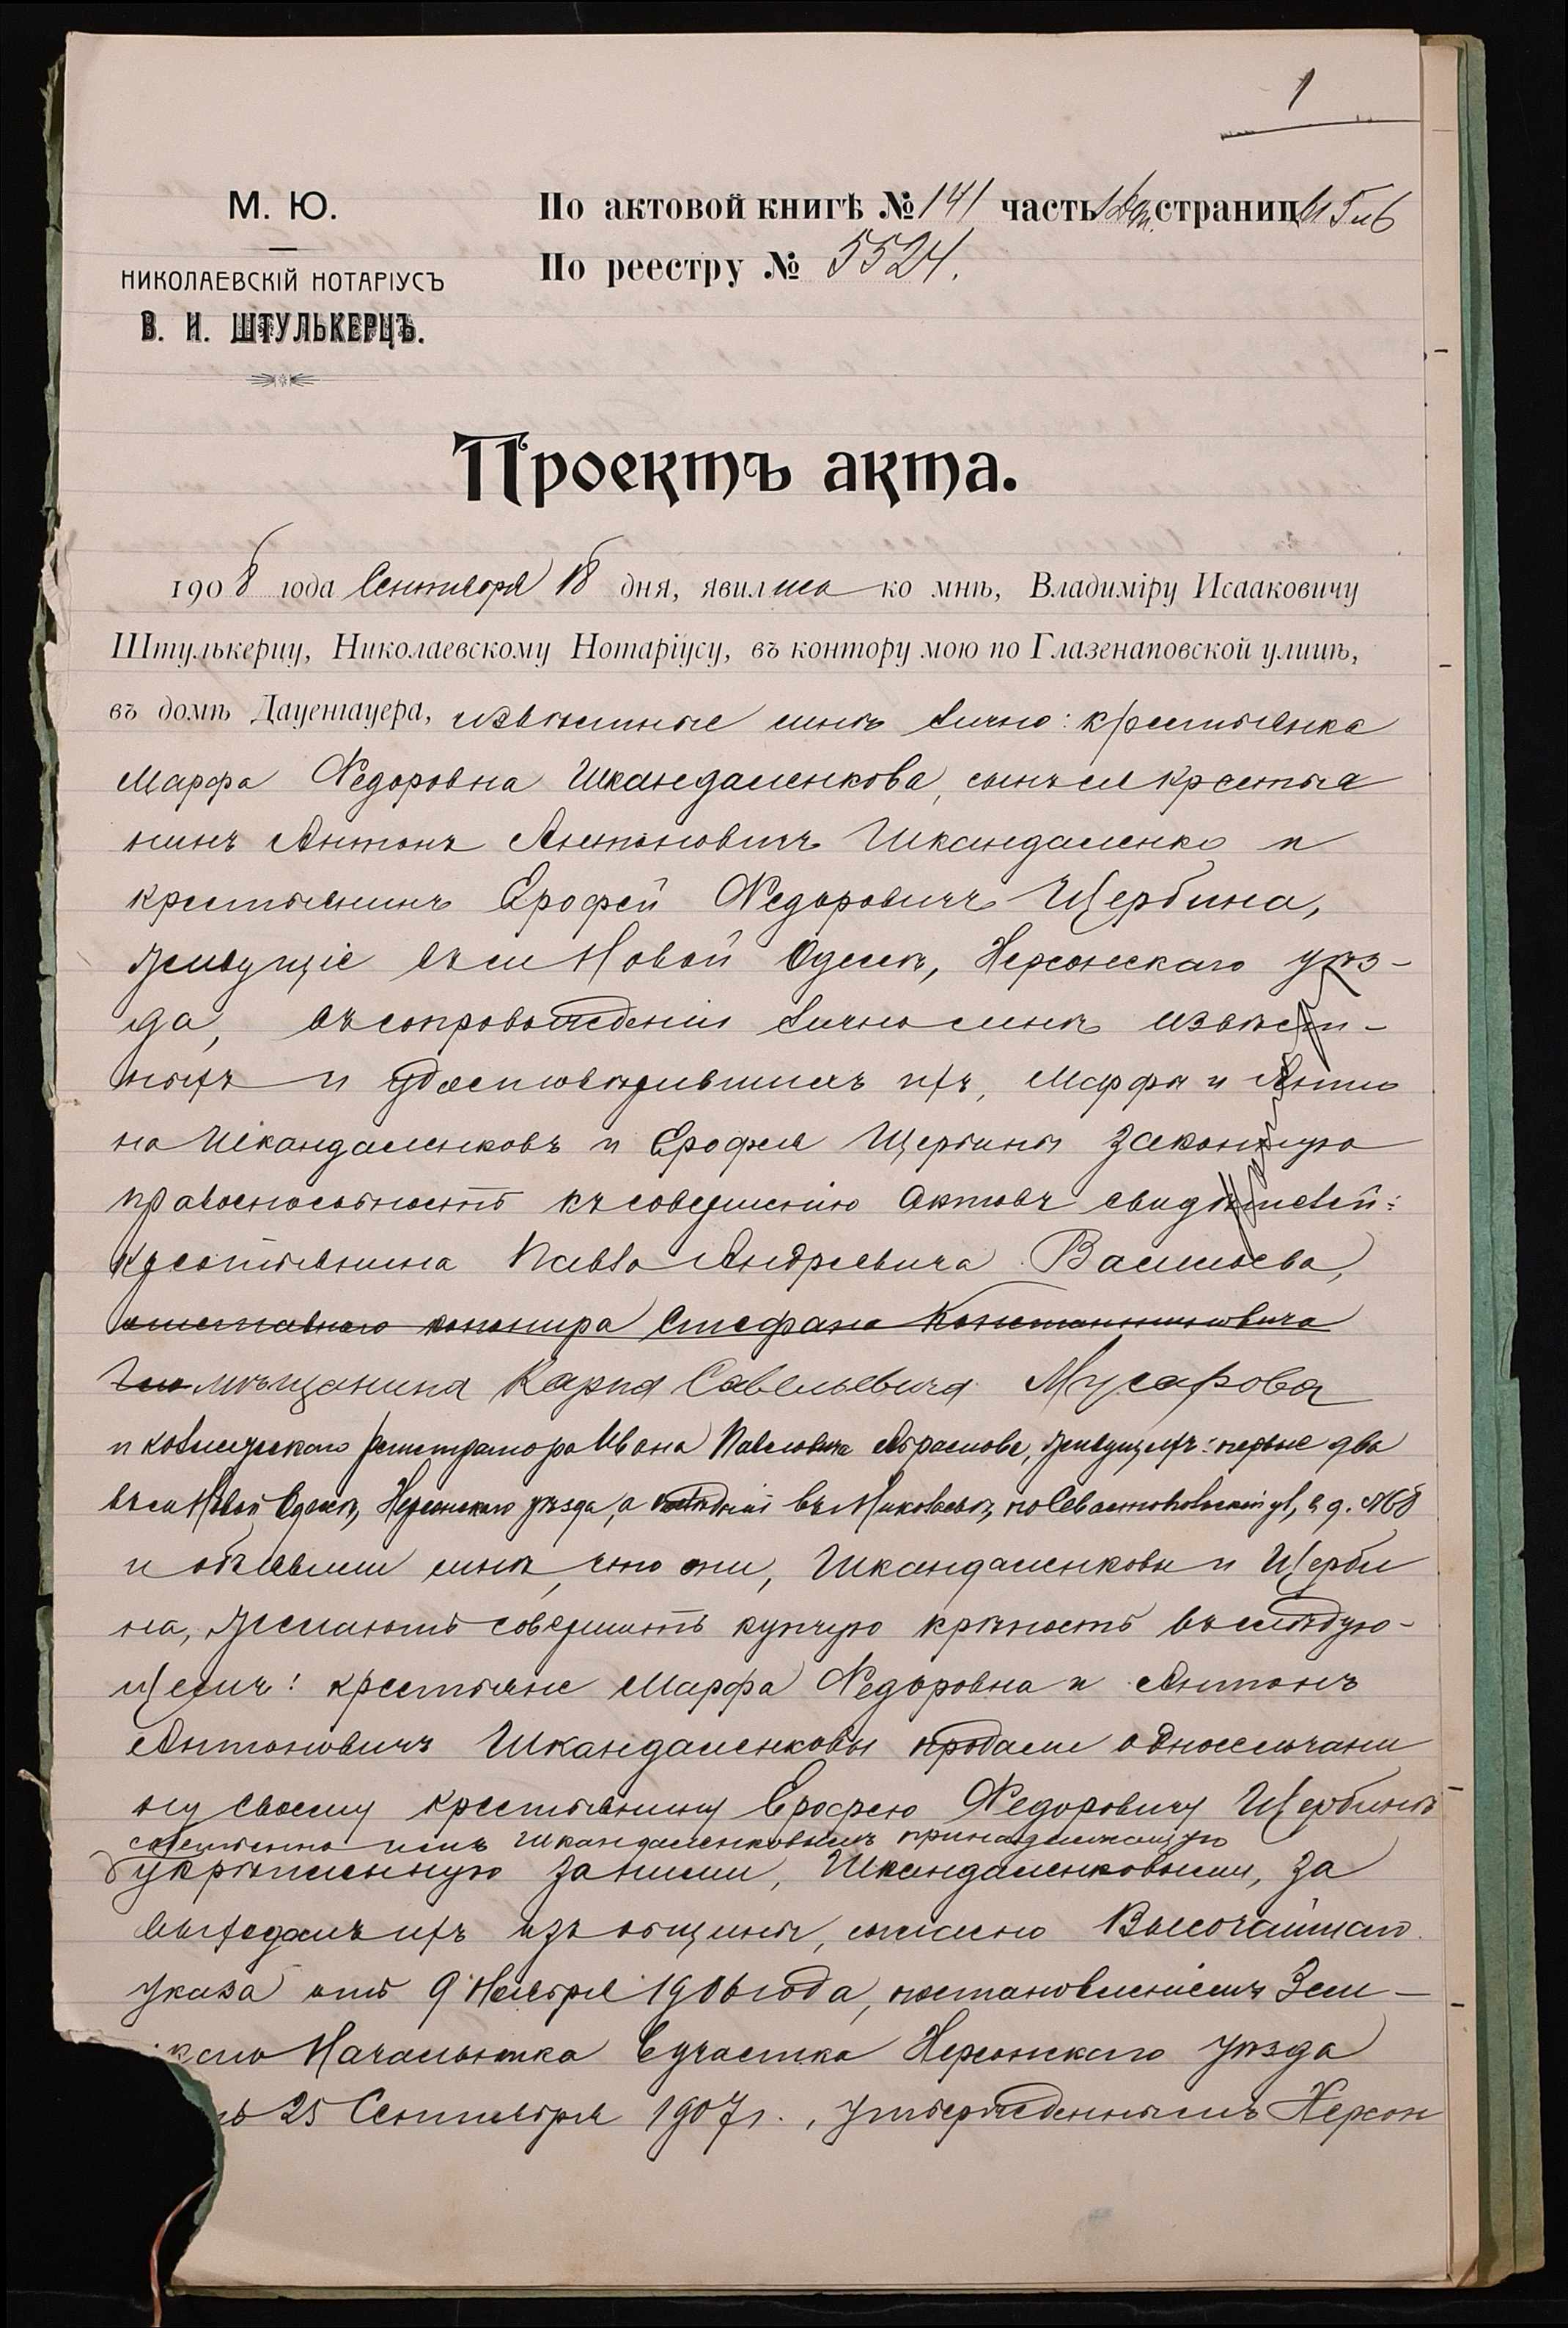 1
М. Ю.
НИКОЛАЕВСКІЙ НОТАРІУСЪ
В. И. ШТУЛЬКЕРЦЪ.
По актовой книгѣ № 141 часть страниц 5 и 6
По реестру № 5524.
Проектъ акта.
1908 года Сентября 18 дня, явились ко мнѣ, Владиміру Исааковичу
Штулькерцу, Николаевскому Нотаріусу, въ контору мою по Глазенаповской улицѣ,
въ домѣ Дауенгауера, извѣстные мнѣ лично: крестьянка
Марфа Ѳедоровна Шкандаленкова, сынъ ея крестья
нинъ Антонъ Антоновичъ Шкандаленко и
крестьянинъ Ерофей Ѳедоровичъ Щербина,
живущіе въ м Новой Одессѣ, Херсонскаго уѣз-
да, въ сопровожденіи лично мнѣ извѣст-
ныхъ и удостовѣрившихъ ихъ, Марфы и Анто
на Шкандаленковъ и Ерофея Щербины законную
правоспособность къ совершенію актовъ свидѣтелей:
крестьянина Павла Андреевича Васильева,
отставного Стефана Константиновича
мѣщанина Карпа Савельевича Мусарова
и коллежскаго регистратора Ивана Павловича Абрамова, живущихъ: первые два
въ м Новой Одессѣ, Херсонскаго уѣзда, а послѣдній въ Николаевѣ, по Севастопольской ул, в д. №8
и объявили мнѣ, что они, Шкандаленковы и Щерби
на, желаютъ совершить купчую крѣпость въ слѣдую-
щемъ: крестьяне Марфа Ѳедоровна и Антонъ
Антоновичъ Шкандаленковы продали односельчани
ну своему крестьянину Ерофею Ѳедоровичу Щербинѣ
собственно имъ Шкандаленковымъ принадлежащую
укрѣпленную за ними, Шкандаленковыми, за
выходомъ ихъ изъ общины, согласно Высочайшаго
указа отъ 9 Ноября 1906 года, постановленіемъ Зем-
скаго Начальника 6 участка Херсонскаго уѣзда
25 Сентября 1907 г., утвержденнымъ Херсон